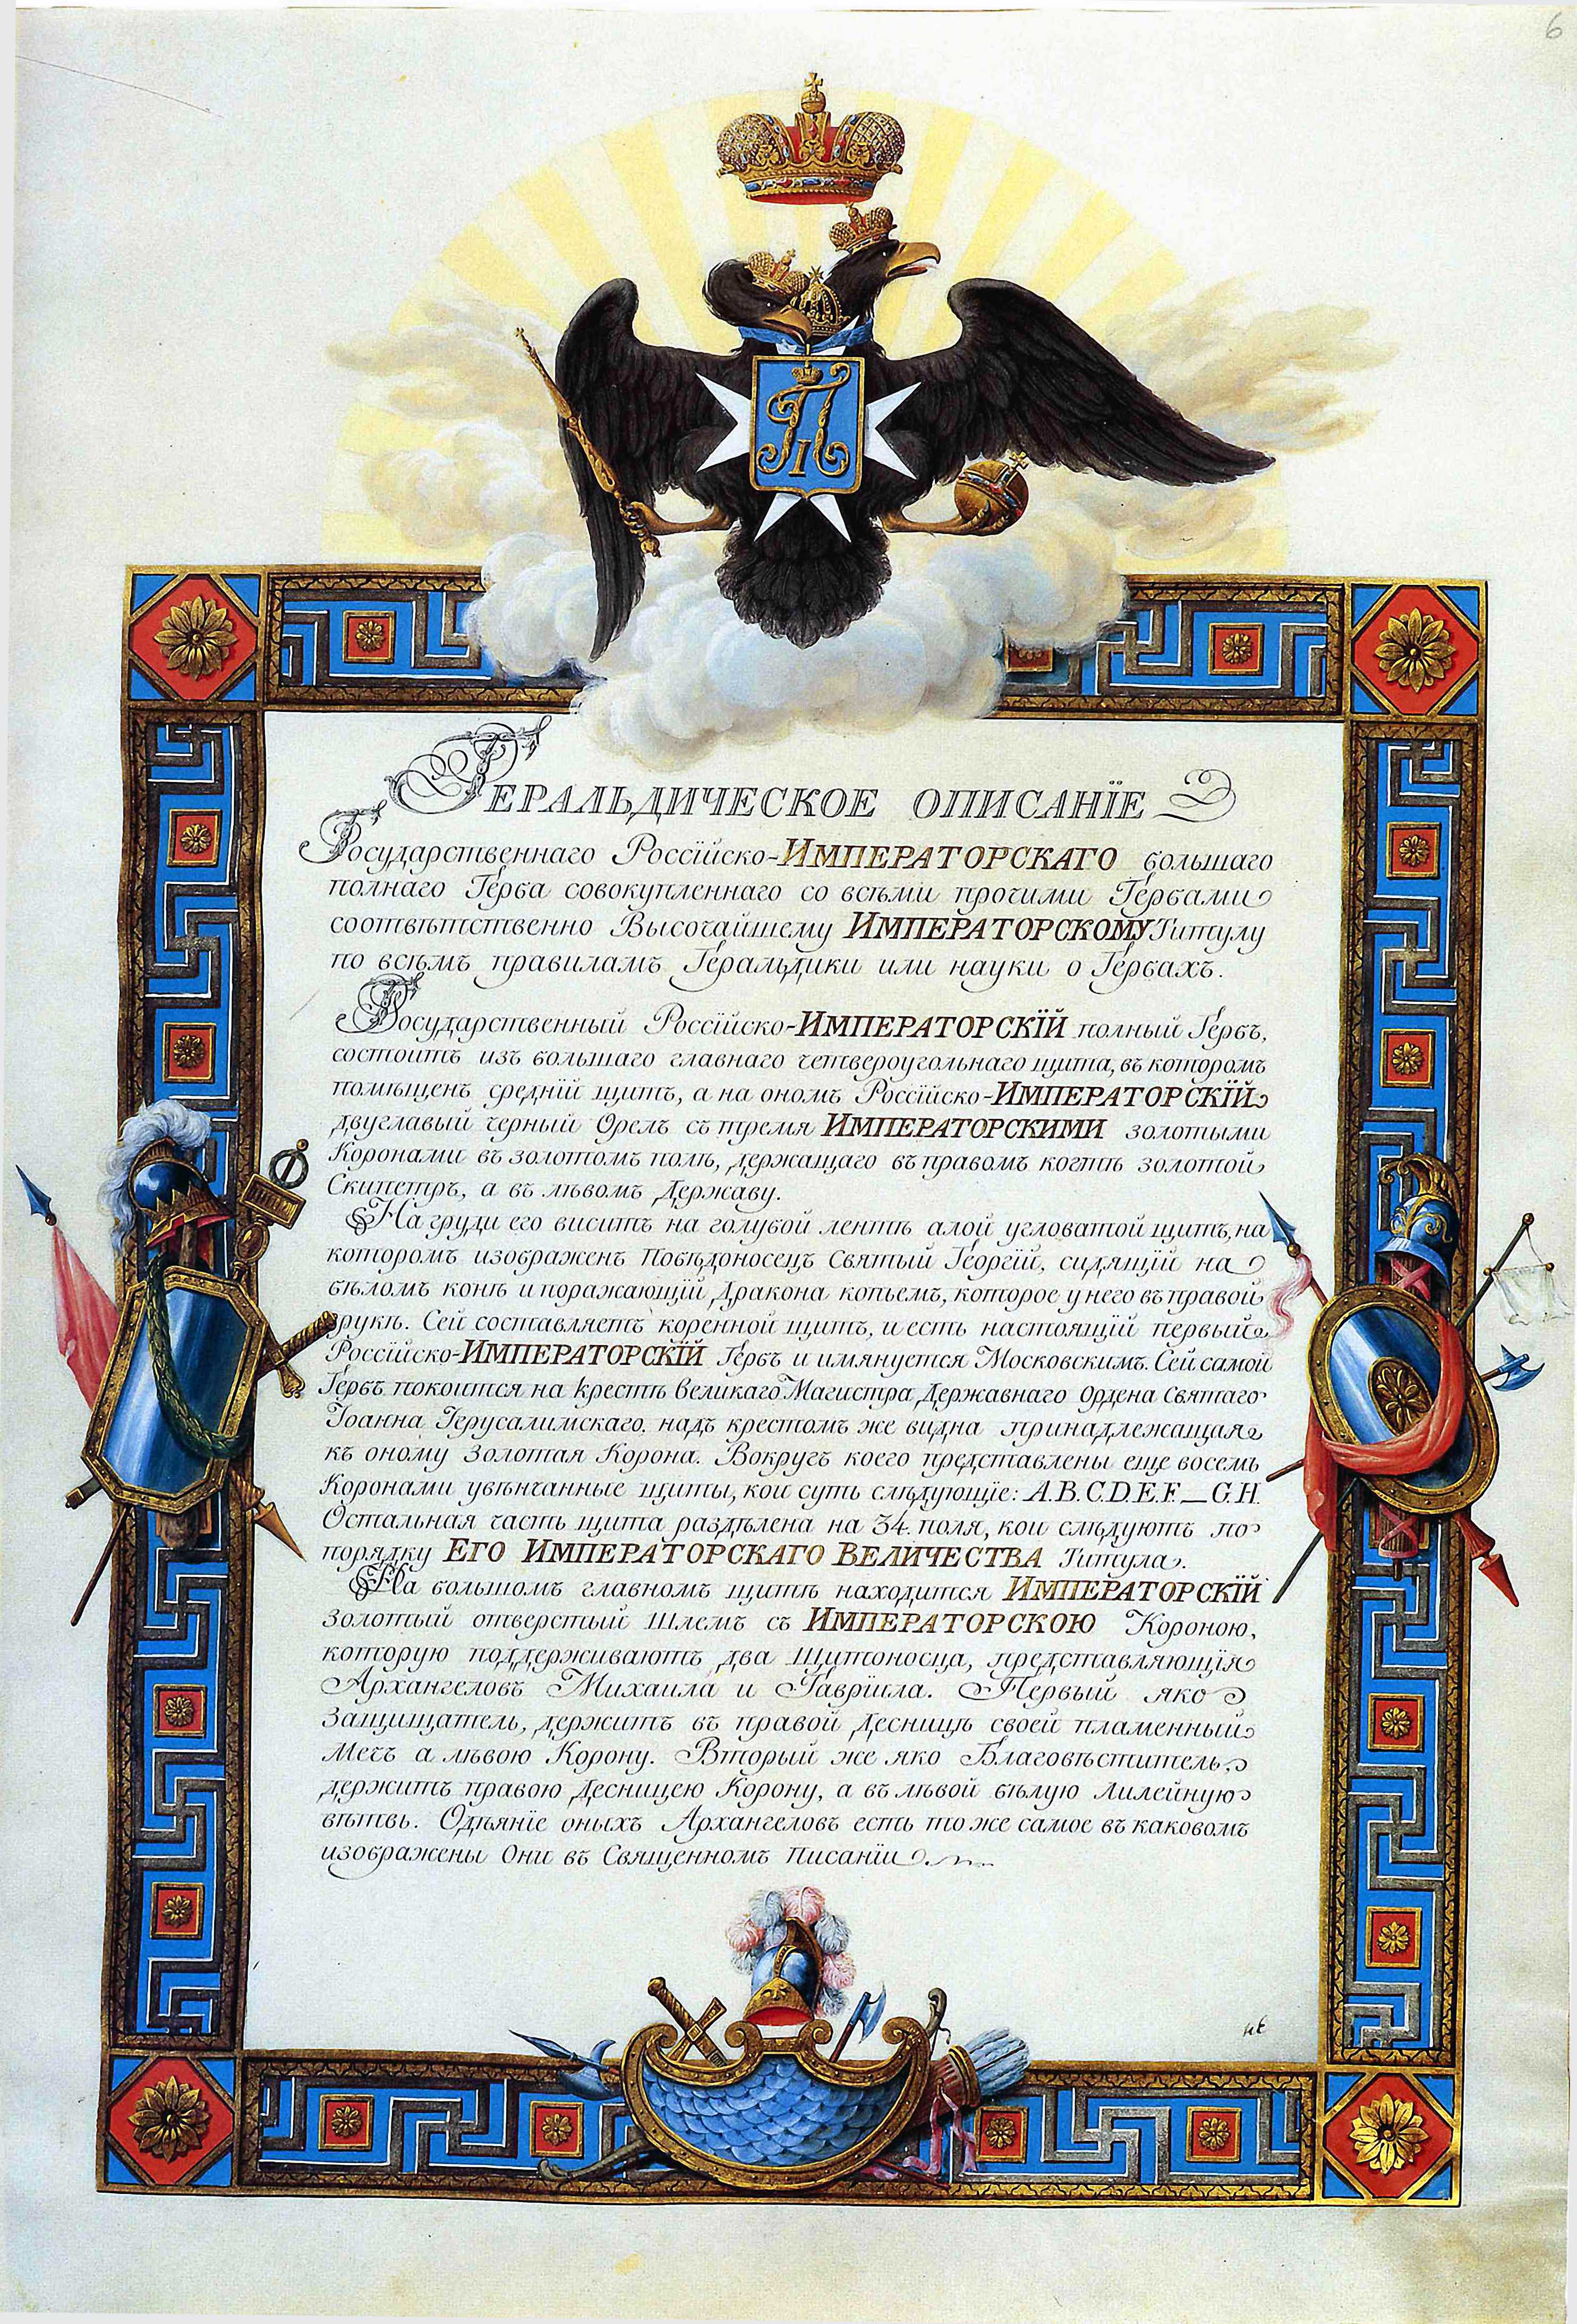 6
П I
ГЕРАЛЬДИЧЕСКОЕ ОПИСАНЇЕ
Государственнаго Россїйско-ИМПЕРАТОРСКАГО большаго
полнаго Герба совокупленнаго со всѣми прочими Гербами
соотвѣтственно Высочайшему ИМПЕРАТОРСКОМУ Титулу
по всѣмъ правиламъ Геральдики или науки о Гербахъ.
Государственный Россїйско-ИМПЕРАТОРСКЇЙ полный Гербъ,
состоитъ изъ большаго главнаго четвероугольнаго щита, въ которомъ
помѣщенъ среднїй щитъ, а на ономъ Россїйско-ИМПЕРАТОРСКЇЙ
двуглавый черный Орелъ съ тремя ИМПЕРАТОРСКИМИ золотыми
Коронами въ золотомъ полѣ, держащаго въ правомъ когтѣ золотой
Скипетръ, а въ лѣвомъ Державу.
На груди его виситъ на голубой лентѣ алой угловатой щитъ, на
которомъ изображенъ Побѣдоносецъ Святый Георгїй, сидящїй на
бѣломъ конѣ и поражающїй Дракона копьемъ, которое у него въ правой
рукѣ. Сей составляетъ коренной щитъ, и есть настоящїй первый
Россїйско-ИМПЕРАТОРСКЇЙ Гербъ и имянуется Московскимъ. Сей самой
Гербъ покоится на крестѣ великаго Магистра Державнаго Ордена Святаго
Іоанна Іерусалимскаго, надъ крестомъ же видна принадлежащая
къ оному Золотая Корона. Вокругъ коего представлены еще восемь
Коронами увѣнчанные щиты, кои суть слѣдующїе: A.B.C.D.E.F._G.H.
Остальная часть щита раздѣлена на 34. поля, кои слѣдуютъ по
порядку ЕГО ИМПЕРАТОРСКАГО ВЕЛИЧЕСТВА Титула.
На большомъ главномъ щитѣ находится ИМПЕРАТОРСКЇЙ
золотый отверстый Шлемъ съ ИМПЕРАТОРСКОЮ Короною,
которую поддерживаютъ два Щитоносца, представляющїя
Архангеловъ Михаила и Гаврїила. Первый яко
Защищатель, держитъ въ правой Десницѣ своей пламенный
Мечъ а лѣвою Корону. Вторый же яко Благовѣститель,
держитъ правою Десницею Корону, а въ лѣвой бѣлую Лилейную
вѣтвь. Одѣянїе оныхъ Архангеловъ есть то же самое въ каковомъ
изображены Они въ Священномъ Писанїи.